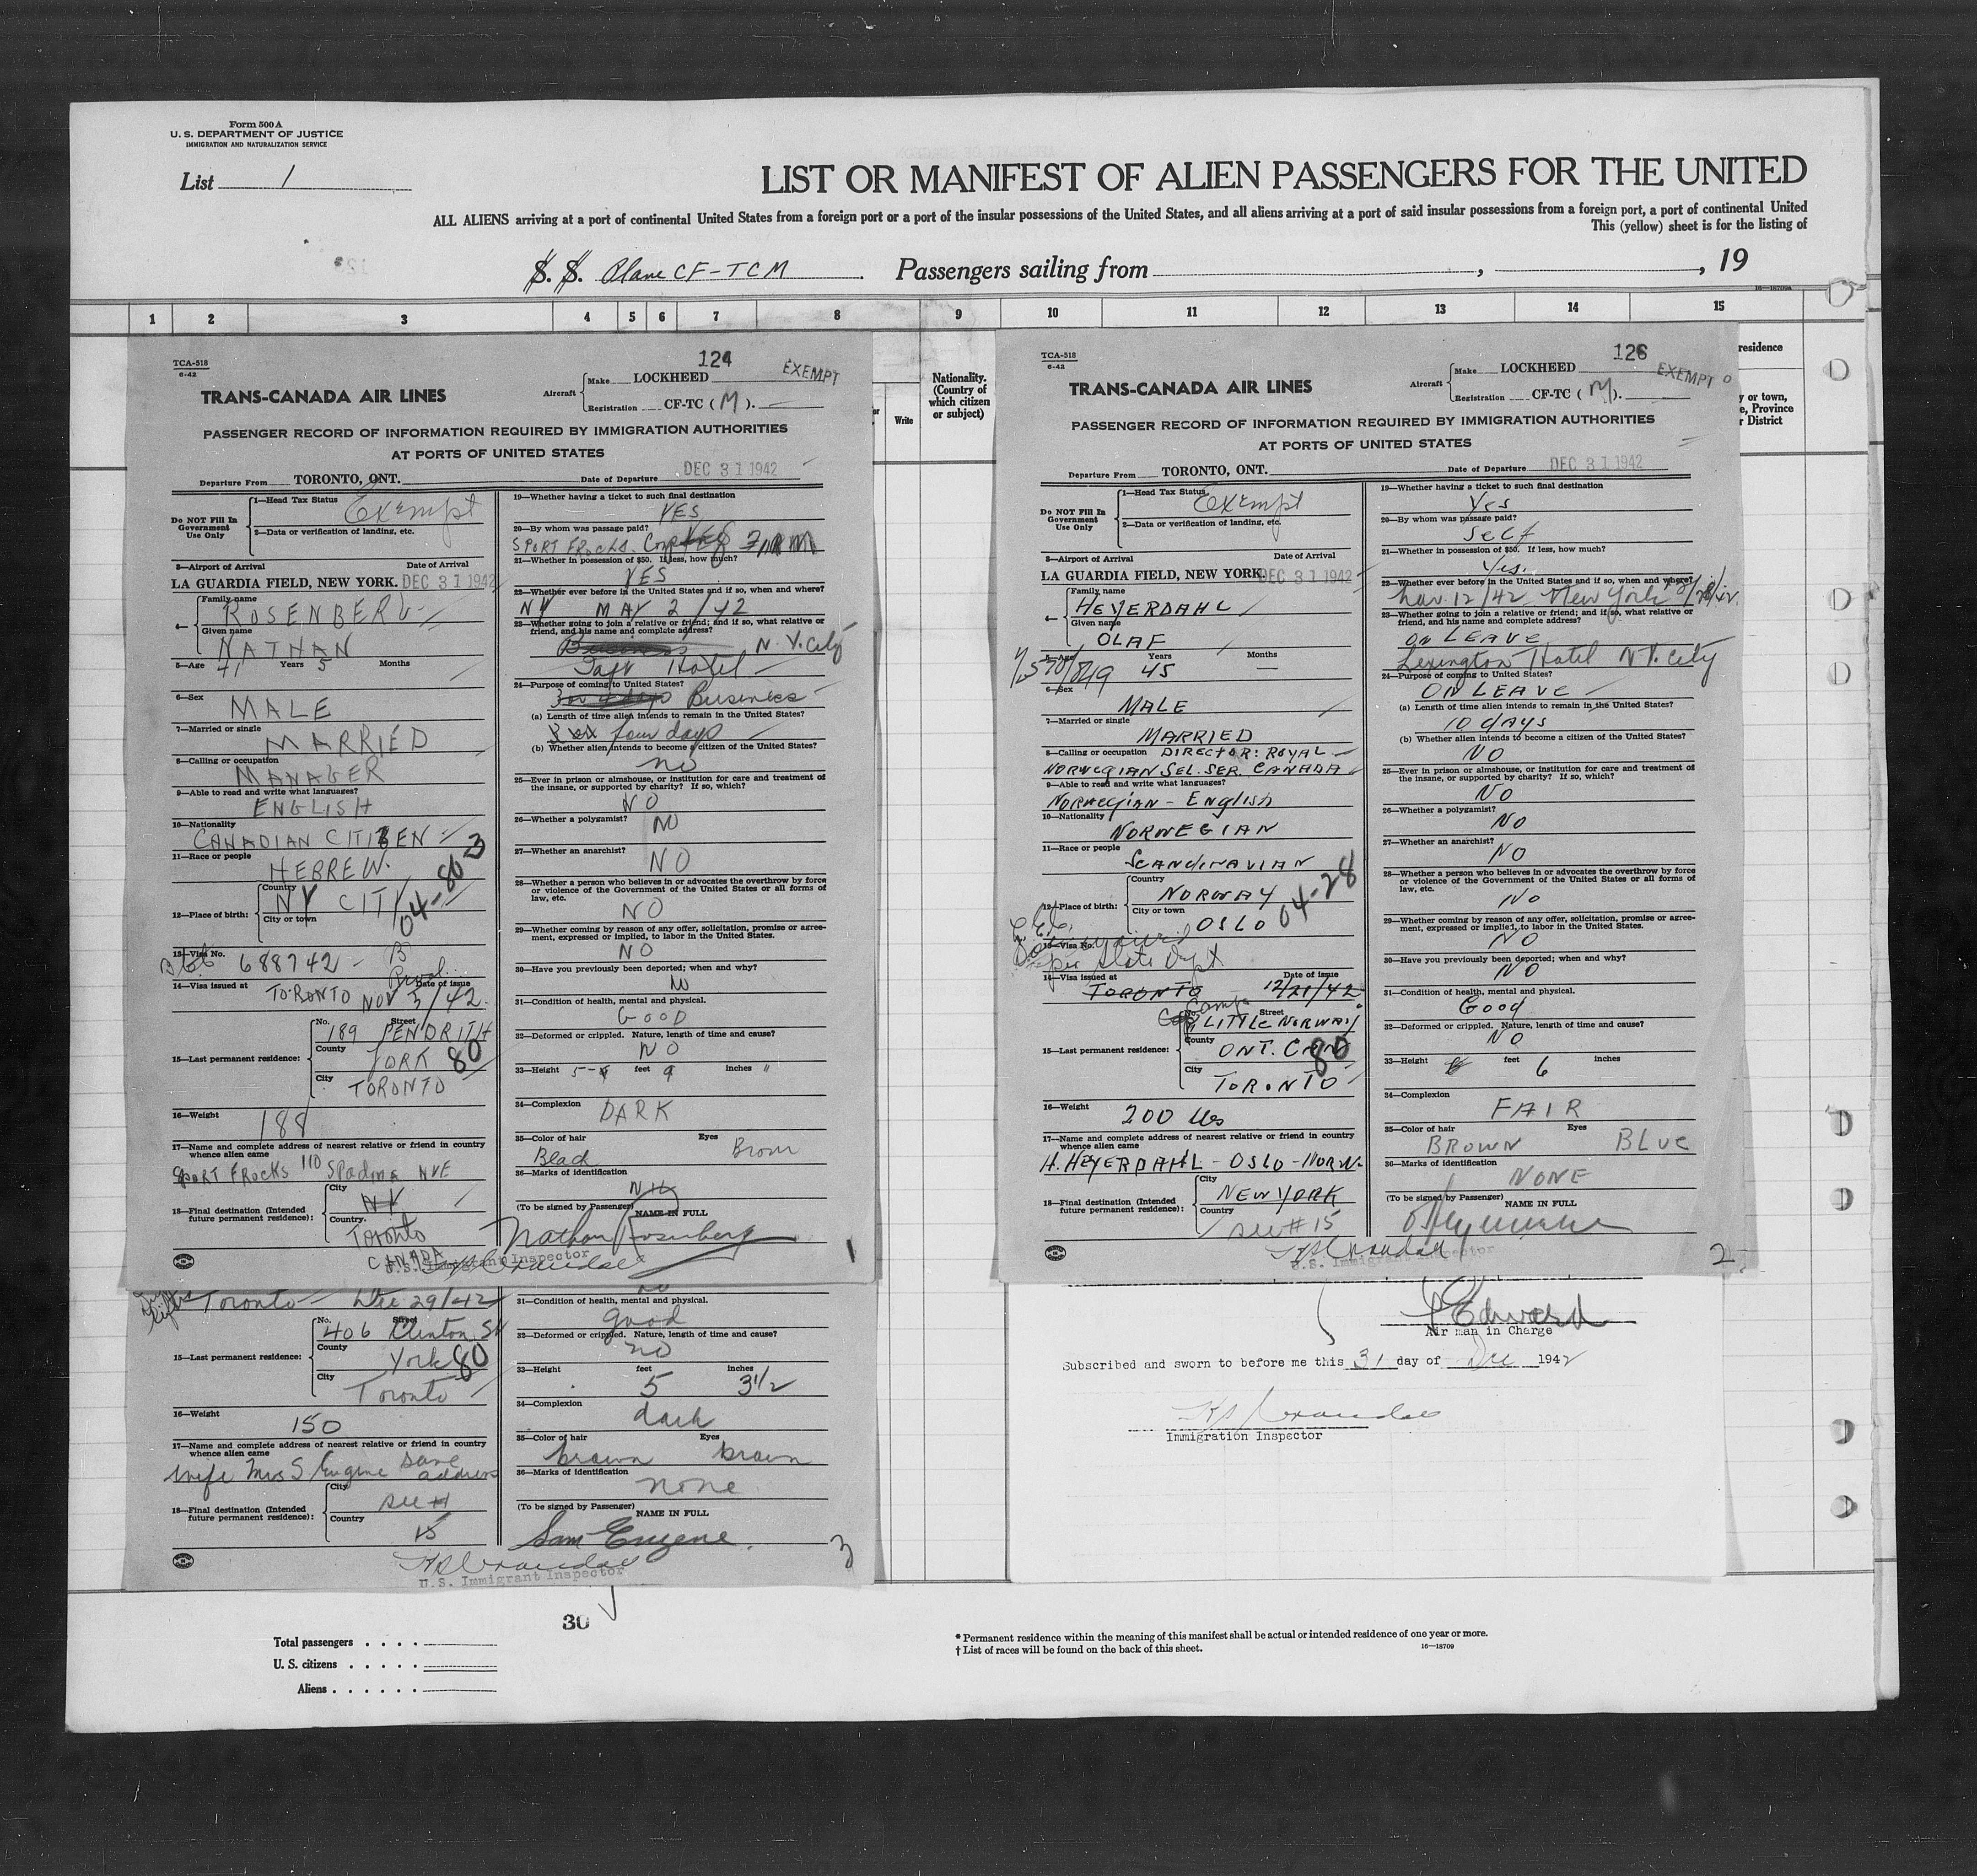 Form 500 A
U. S. DEPARTMENT OF JUSTICE
IMMIGRATION AND NATURALIZATION SERVICE
List 1
LIST OR MANIFEST OF ALIEN PASSENGERS FOR THE UNITED
ALL ALIENS arriving at a port of continental United States from a foreign port or a port of the insular possessions of the United States, and all aliens arriving at a port of said insular possessions from a foreign port, a port of continental United
This (yellow) sheet is for the listing of
S. S. Plane CF-TCM Passengers sailing from , , 19
1 2 3 4 5 6 7 8 9 10 11 12 13 14 15
Write
Nationality.
(Country of
which citizen
or subject)
residence
y or town,
e, Province
r District
TCA-518
6-42
124
EXEMPT
TRANS-CANADA AIR LINES
Aircraft Make LOCKHEED
Registration CF-TC (M).
PASSENGER RECORD OF INFORMATION REQUIRED BY IMMIGRATION AUTHORITIES
AT PORTS OF UNITED STATES
Departure From TORONTO, ONT. Date of Departure DEC 31 1942
Do NOT Fill In
Government
Use Only
1—Head Tax Status Exempt
2—Data or verification of landing, etc.
3—Airport of Arrival Date of Arrival
LA GUARDIA FIELD, NEW YORK. DEC 31 1942
4— Family name
ROSENBERG
Given name
NATHAN
5—Age 41 Years 5 Months
6—Sex
MALE
7—Married or single
MARRIED
8—Calling or occupation
MANAGER
9—Able to read and write what languages?
ENGLISH
10—Nationality
CANADIAN CITIZEN
11—Race or people
HEBREW.
12—Place of birth:
Country
NY CITY
City or town
04-80 3
13—Visa No.
688742
14—Visa issued at Date of issue
TORONTO NOV 5/42.
15—Last permanent residence:
No. Street
189 PENDRITH
County
YORK 80
City
TORONTO
16—Weight
188
17—Name and complete address of nearest relative or friend in country
whence alien came
SPORT FROCKS 110 Spadina AVE
18—Final destination (Intended
future permanent residence):
City
NY
Country.
Toronto
CANADA
19—Whether having a ticket to such final destination
YES
20—By whom was passage paid?
SPORT FROCKS. FIRM
21—Whether in possession of $50. If less, how much?
YES
22—Whether ever before in the United States and if so, when and where?
NY MAY 2/42
23—Whether going to join a relative or friend; and if so, what relative or
friend, and his name and complete address?
Business N. Y. City
Taft Hotel
24—Purpose of coming to United States?
Business
(a) Length of time alien intends to remain in the United States?
four days
(b) Whether alien intends to become a citizen of the United States?
no
25—Ever in prison or almshouse, or institution for care and treatment of
the insane, or supported by charity? If so, which?
NO
26—Whether a polygamist? NO
27—Whether an anarchist?
NO
28—Whether a person who believes in or advocates the overthrow by force
or violence of the Government of the United States or all forms of
law, etc.
NO
29—Whether coming by reason of any offer, solicitation, promise or agree-
ment, expressed or implied, to labor in the United States.
NO
30—Have you previously been deported; when and why?
31—Condition of health, mental and physical.
GOOD
32—Deformed or crippled. Nature, length of time and cause?
NO
33—Height 5 feet 9 inches
34—Complexion
DARK
35—Color of hair Eyes
Black Brown
36—Marks of identification
(To be signed by Passenger) NAME IN FULL
Nathan Rosenberg
U.S. Immigrant Inspector
1
TCA-518
6-42
126
EXEMPT
TRANS-CANADA AIR LINES
Aircraft Make LOCKHEED
Registration CF-TC (M).
PASSENGER RECORD OF INFORMATION REQUIRED BY IMMIGRATION AUTHORITIES
AT PORTS OF UNITED STATES
Departure From TORONTO, ONT. Date of Departure DEC 31 1942
Do NOT Fill In
Government
Use Only
1—Head Tax Status Exempt
2—Data or verification of landing, etc.
3—Airport of Arrival Date of Arrival
LA GUARDIA FIELD, NEW YORK DEC 31 1942
4— Family name
HEYERDAHL
Given name
OLAF
5—Age 45 Years — Months
6—Sex
MALE
7—Married or single
MARRIED
8—Calling or occupation DIRECTOR: ROYAL
NORWEGIAN SEL. SER. CANADA
9—Able to read and write what languages?
NORWEGIAN - English
10—Nationality
NORWEGIAN
11—Race or people
SCANDINAVIAN
12—Place of birth:
Country
NORWAY
City or town
OSLO 04-28
13—Visa No.
per State Dept
14—Visa issued at Date of issue
TORONTO 12/21/42
15—Last permanent residence:
No. Street
Camp LITTLE NORWAY
County
ONT. CAN 80
City
TORONTO
16—Weight
200 lbs
17—Name and complete address of nearest relative or friend in country
whence alien came
H. HEYERDAHL - OSLO - NORW.
18—Final destination (Intended
future permanent residence):
City
NEW YORK
Country
see # 15
19—Whether having a ticket to such final destination
Yes
20—By whom was passage paid?
Self
21—Whether in possession of $50. If less, how much?
Yes.
22—Whether ever before in the United States and if so, when and where?
12/42 New York
23—Whether going to join a relative or friend; and if so, what relative or
friend, and his name and complete address?
ON LEAVE
Lexington Hotel N.Y. City
24—Purpose of coming to United States?
ON LEAVE
(a) Length of time alien intends to remain in the United States?
10 days
(b) Whether alien intends to become a citizen of the United States?
NO
25—Ever in prison or almshouse, or institution for care and treatment of
the insane, or supported by charity? If so, which?
NO
26—Whether a polygamist?
NO
27—Whether an anarchist?
NO
28—Whether a person who believes in or advocates the overthrow by force
or violence of the Government of the United States or all forms of
law, etc.
NO
29—Whether coming by reason of any offer, solicitation, promise or agree-
ment, expressed or implied, to labor in the United States.
NO
30—Have you previously been deported; when and why?
NO
31—Condition of health, mental and physical.
Good
32—Deformed or crippled. Nature, length of time and cause?
NO
33—Height feet 6 inches
34—Complexion
FAIR
35—Color of hair Eyes
BROWN BLUE
36—Marks of identification
NONE
(To be signed by Passenger) NAME IN FULL
U.S. Immigrant Inspector
2
Toronto Dec 29/42
15—Last permanent residence:
No. Street
406 Clinton St
County
York 80
City
Toronto
16—Weight
150
17—Name and complete address of nearest relative or friend in country
whence alien came
wife Mrs S Eugene same address
18—Final destination (Intended
future permanent residence):
City
see #
Country
15
no
31—Condition of health, mental and physical.
good
32—Deformed or crippled. Nature, length of time and cause?
no
33—Height feet inches
5 3 1/2
34—Complexion
dark
35—Color of hair Eyes
brown brown
36—Marks of identification
none
(To be signed by Passenger) NAME IN FULL
Sam Eugene.
U.S. Immigrant Inspector
3
Edward
Air man in Charge
Subscribed and sworn to before me this 31 day of Dec 1942
Immigration Inspector
30
Total passengers . . . .
U. S. citizens . . . . .
Aliens . . . . . .
* Permanent residence within the meaning of this manifest shall be actual or intended residence of one year or more.
† List of races will be found on the back of this sheet.
16—18709